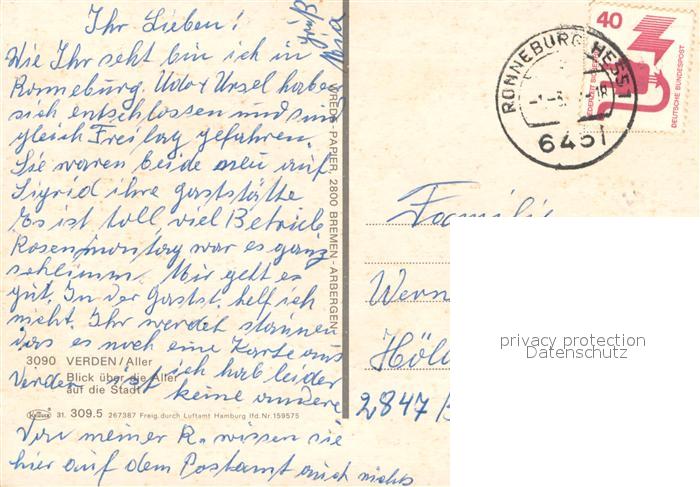 Ihr Lieben!
Wie Ihr seht bin ich in
Ronneburg. Udo + Ursel haben
sich entschlossen und sind
gleich Freitag gefahren.
Sie waren beide neu auf
Sigrid ihre Gaststätte.
Es ist toll viel Betrieb
Rosenmontag war es ganz
schlimm. Mir geht es
gut. In der Gastst. helf ich
nicht. Ihr werdet staunen
das es noch eine Karte aus
Verden ist ich hab leider
keine andere
Von meiner R. wissen sie
hier auf dem Postamt auch nichts
3090 VERDEN/Aller
Blick über die Aller
auf die Stadt
31. 309.5 267387 Freig. durch Luftamt Hamburg lfd.Nr.159575
WREDE-PAPIER, 2800 BREMEN-ARBERGEN
RONNEBURG, HESS 1
6451
40
DEUTSCHE BUNDESPOST
Familie
Wern
Höl
2847 B
privacy protection
Datenschutz